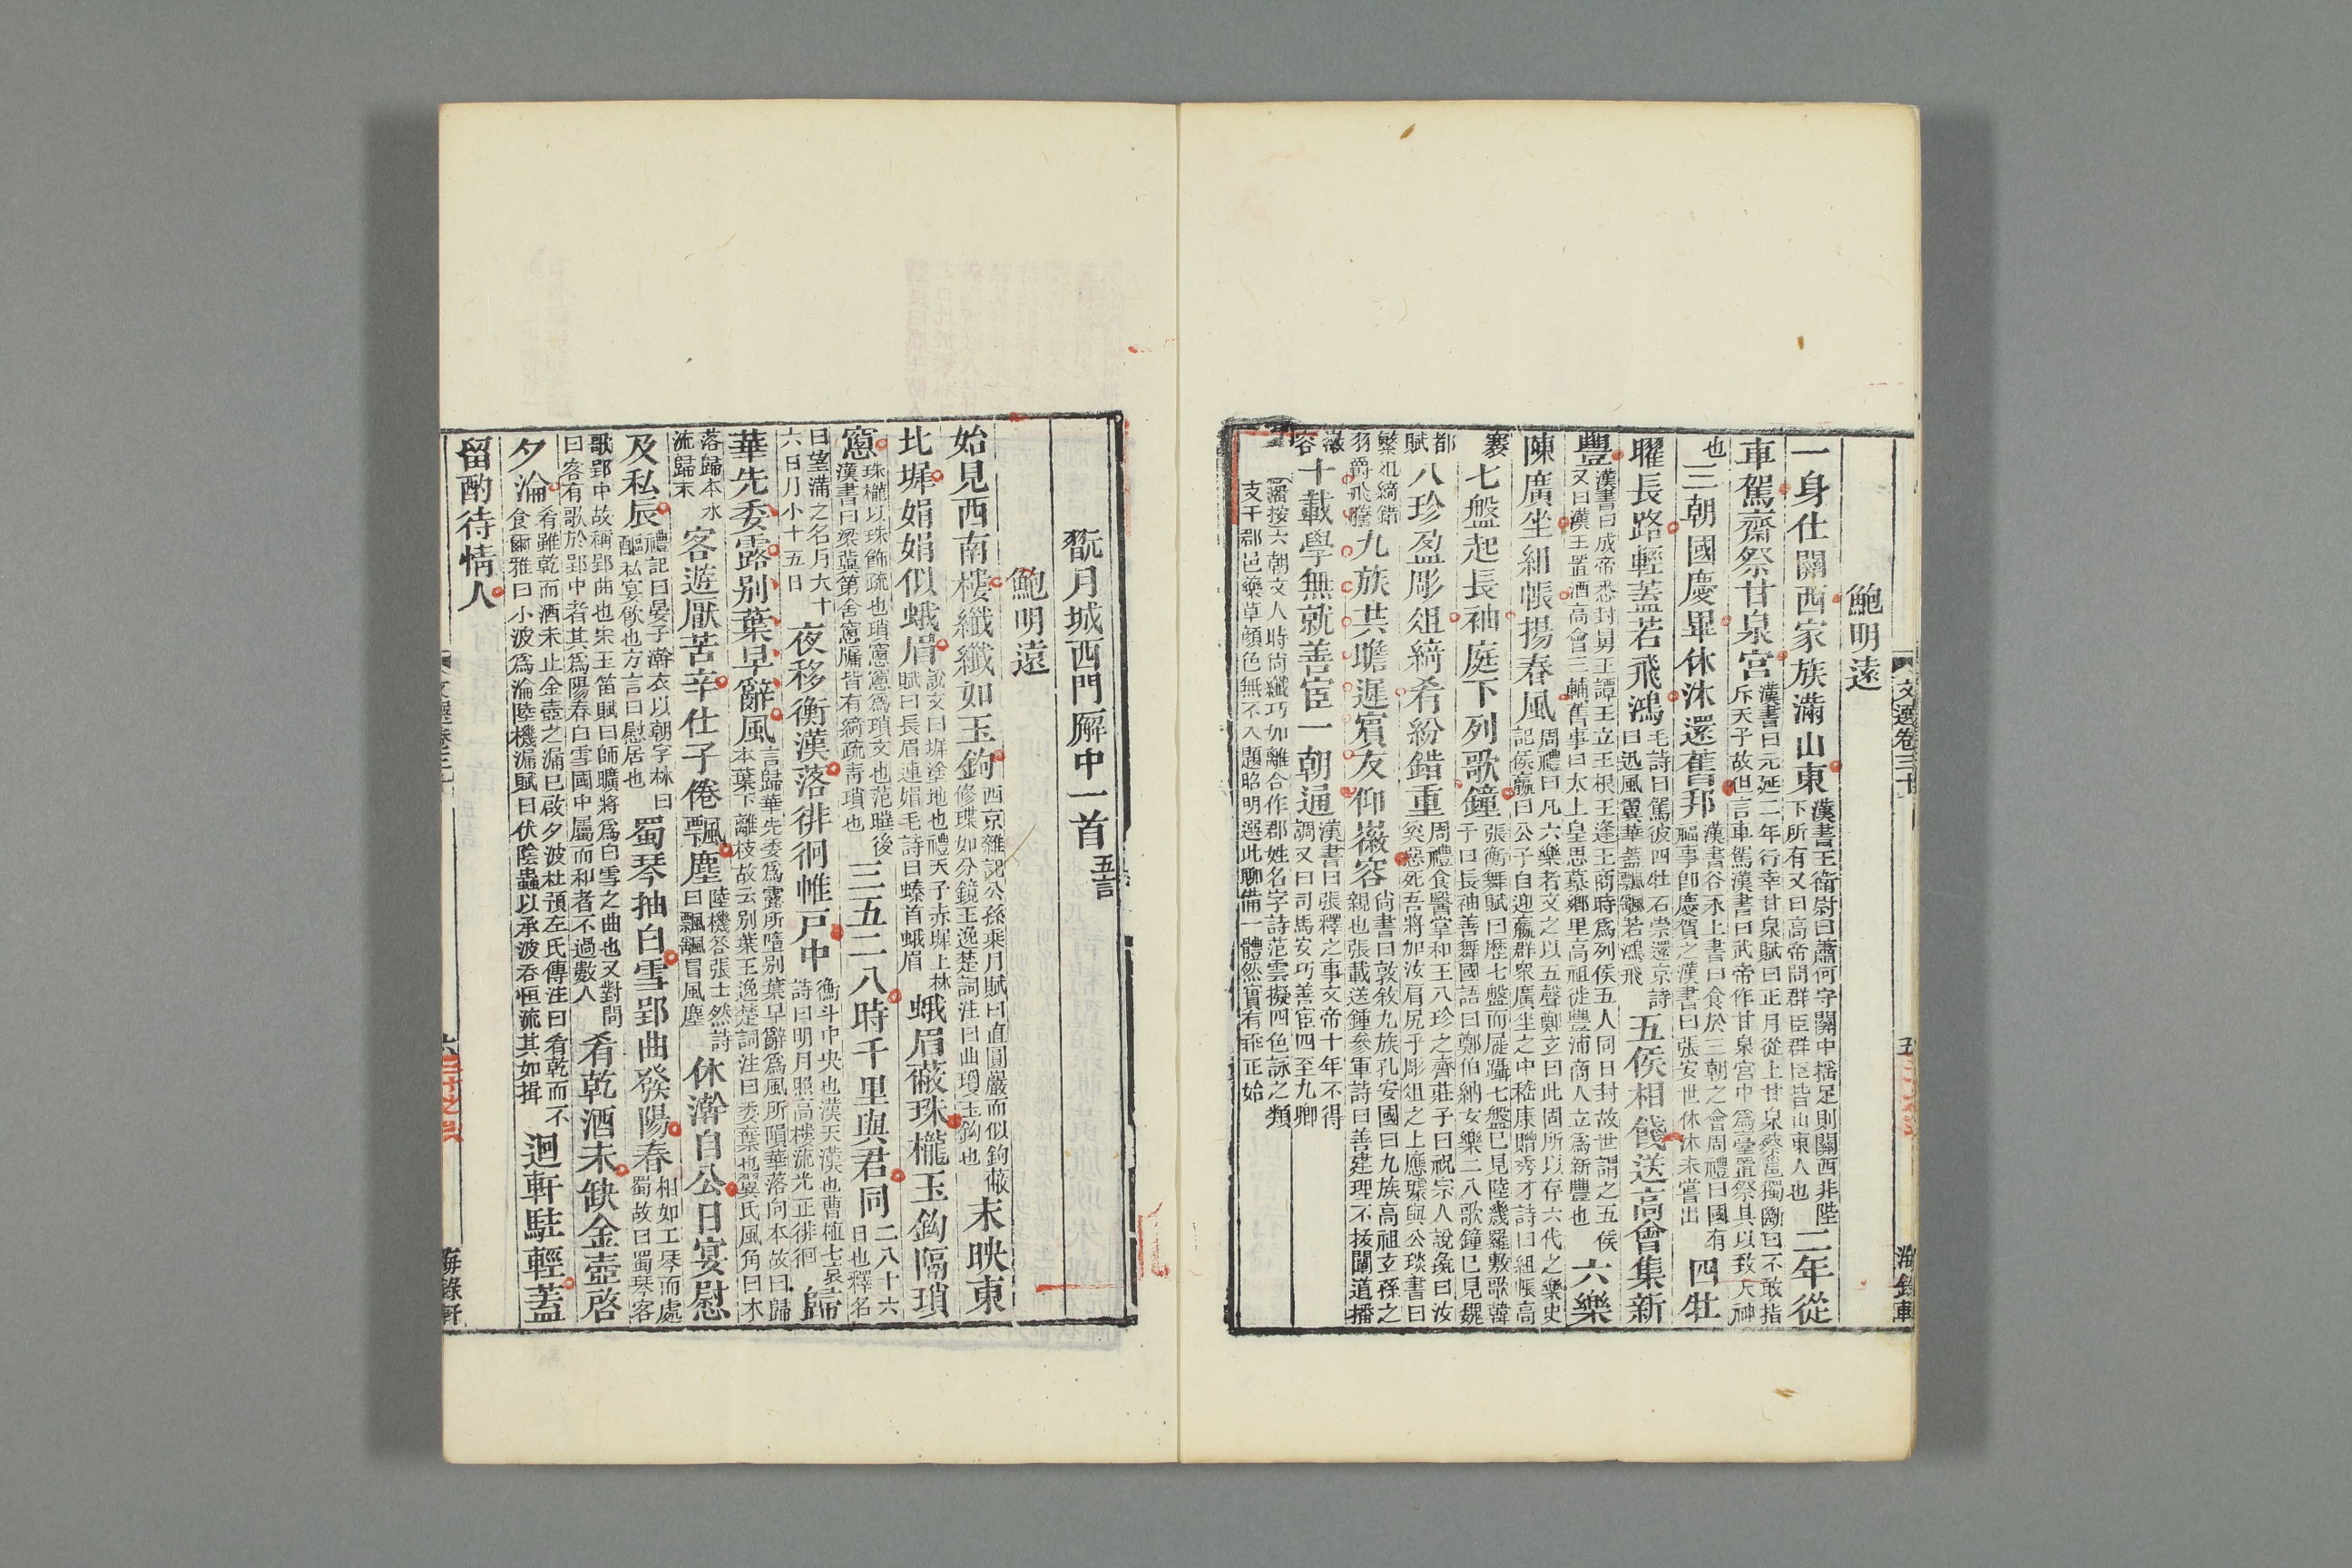 鮑明遠
一身仕關西家族滿山東漢書王衛尉曰蕭何守關中揺足則關西非陛下所有又曰高帝問群臣群臣皆山東人也二年從
車駕齋祭甘泉宮漢書曰元延二年行幸甘泉賦曰正月從上甘泉蔡邕獨斷曰不敢指斥天子故但言車駕漢書曰武帝作甘泉宮中爲臺置祭具以致天神
也三朝國慶畢休沐還舊邦漢書谷永上書曰食於三朝之會周禮曰國有福事卽慶賀之漢書曰張安世休沐未嘗出四牡
曜長路輕蓋若飛鴻毛詩曰駕彼四牡石崇還京詩曰迅風翼華蓋飄颻若鴻飛五侯相餞送高會集新
豐漢書曰成帝悉封舅王譚王立王根王逢王商時爲列侯五人同日封故世謂之五侯又曰漢王置酒高會三輔舊事曰太上皇思慕鄕里高祖徙豐沛商人立爲新豐也六樂
陳廣坐組帳揚春風周禮曰凡六樂者文之以五聲鄭玄曰此固所以存六代之樂史記侯嬴曰公子自迎嬴群衆廣坐之中嵇康贈秀才詩曰組帳高
褰七盤起長袖庭下列歌鐘張衡舞賦曰歷七盤而屣躡七盤已見陸幾羅敷歌韓子曰長袖善舞國語曰鄭伯納女樂二八歌鐘已見魏
都賦八珍盈彫俎綺肴紛錯重周禮食醫掌和王八珍之齊莊子曰祝宗人說彘曰汝奚惡死吾將加汝肩尻乎彫俎之上應璩與公琰書曰
繁俎綺錯羽爵飛騰九族共瞻遲賓友仰徽容尚書曰敦敘九族孔安國曰九族高祖玄孫之親也張載送鍾參軍詩曰善建理不拔闡道播
徽容十載學無就善宦一朝通漢書曰張釋之事文帝十年不得調又曰司馬安巧善宦四至九卿
潘按六朝文人時尙纖巧如離合作郡姓名字詩范雲擬四色詠之類
支干郡邑藥草顔色無不入題昭明選此聊備一體然實有乖正始
文選卷三十
五
海錄軒
翫月城西門廨中一首五言
鮑明遠
始見西南樓纖纖如玉鉤西京雜記公孫乘月賦曰直圓巖而似鉤蔽修堞如分鏡王逸楚詞注曰曲瓊玉鉤也末映東
北墀娟娟似蛾眉說文曰墀塗地也禮天子赤墀上林賦曰長眉連娟毛詩曰螓首蛾眉蛾眉蔽珠櫳玉鉤隔瑣
窻珠櫳以珠飾疏也瑣窻窻爲瑣文也范曄後漢書曰梁冀第舍窻牖皆有綺疏青瑣也三五二八時千里與君同二八十六日也釋名
曰望滿之名月大十六日月小十五日夜移衡漢落徘徊帷戸中衡斗中央也漢天漢也曹植七哀詩曰明月照高樓流光正徘徊歸
華先委露别葉早辭風言歸華先委爲露所墮别葉早辭爲風所隕華落向本故曰歸本葉下離枝故云别葉王逸楚詞注曰委棄也翼氏風角曰木
落歸本水流歸末客遊厭苦辛仕子倦飄塵陸機答張士然詩曰飄颻冒風塵休澣自公日宴慰
及私辰禮記曰晏子澣衣以朝字林曰醧私宴飮也方言曰慰居也蜀琴抽白雪郢曲發陽春相如工琴而處蜀故曰蜀琴客
歌郢中故稱郢曲也宋玉笛賦曰師曠將爲白雪之曲也又對問曰客有歌於郢中者其爲陽春白雪國中屬而和者不過數人肴乾酒未缺金壺啓
夕淪肴雖乾而酒未止金壺之漏已啟夕波杜預左氏傳注曰肴乾而不食爾雅曰小波爲淪陸機漏賦曰伏陰蟲以承波呑恒流其如揖迴軒駐輕蓋
留酌待情人
六
海錄軒